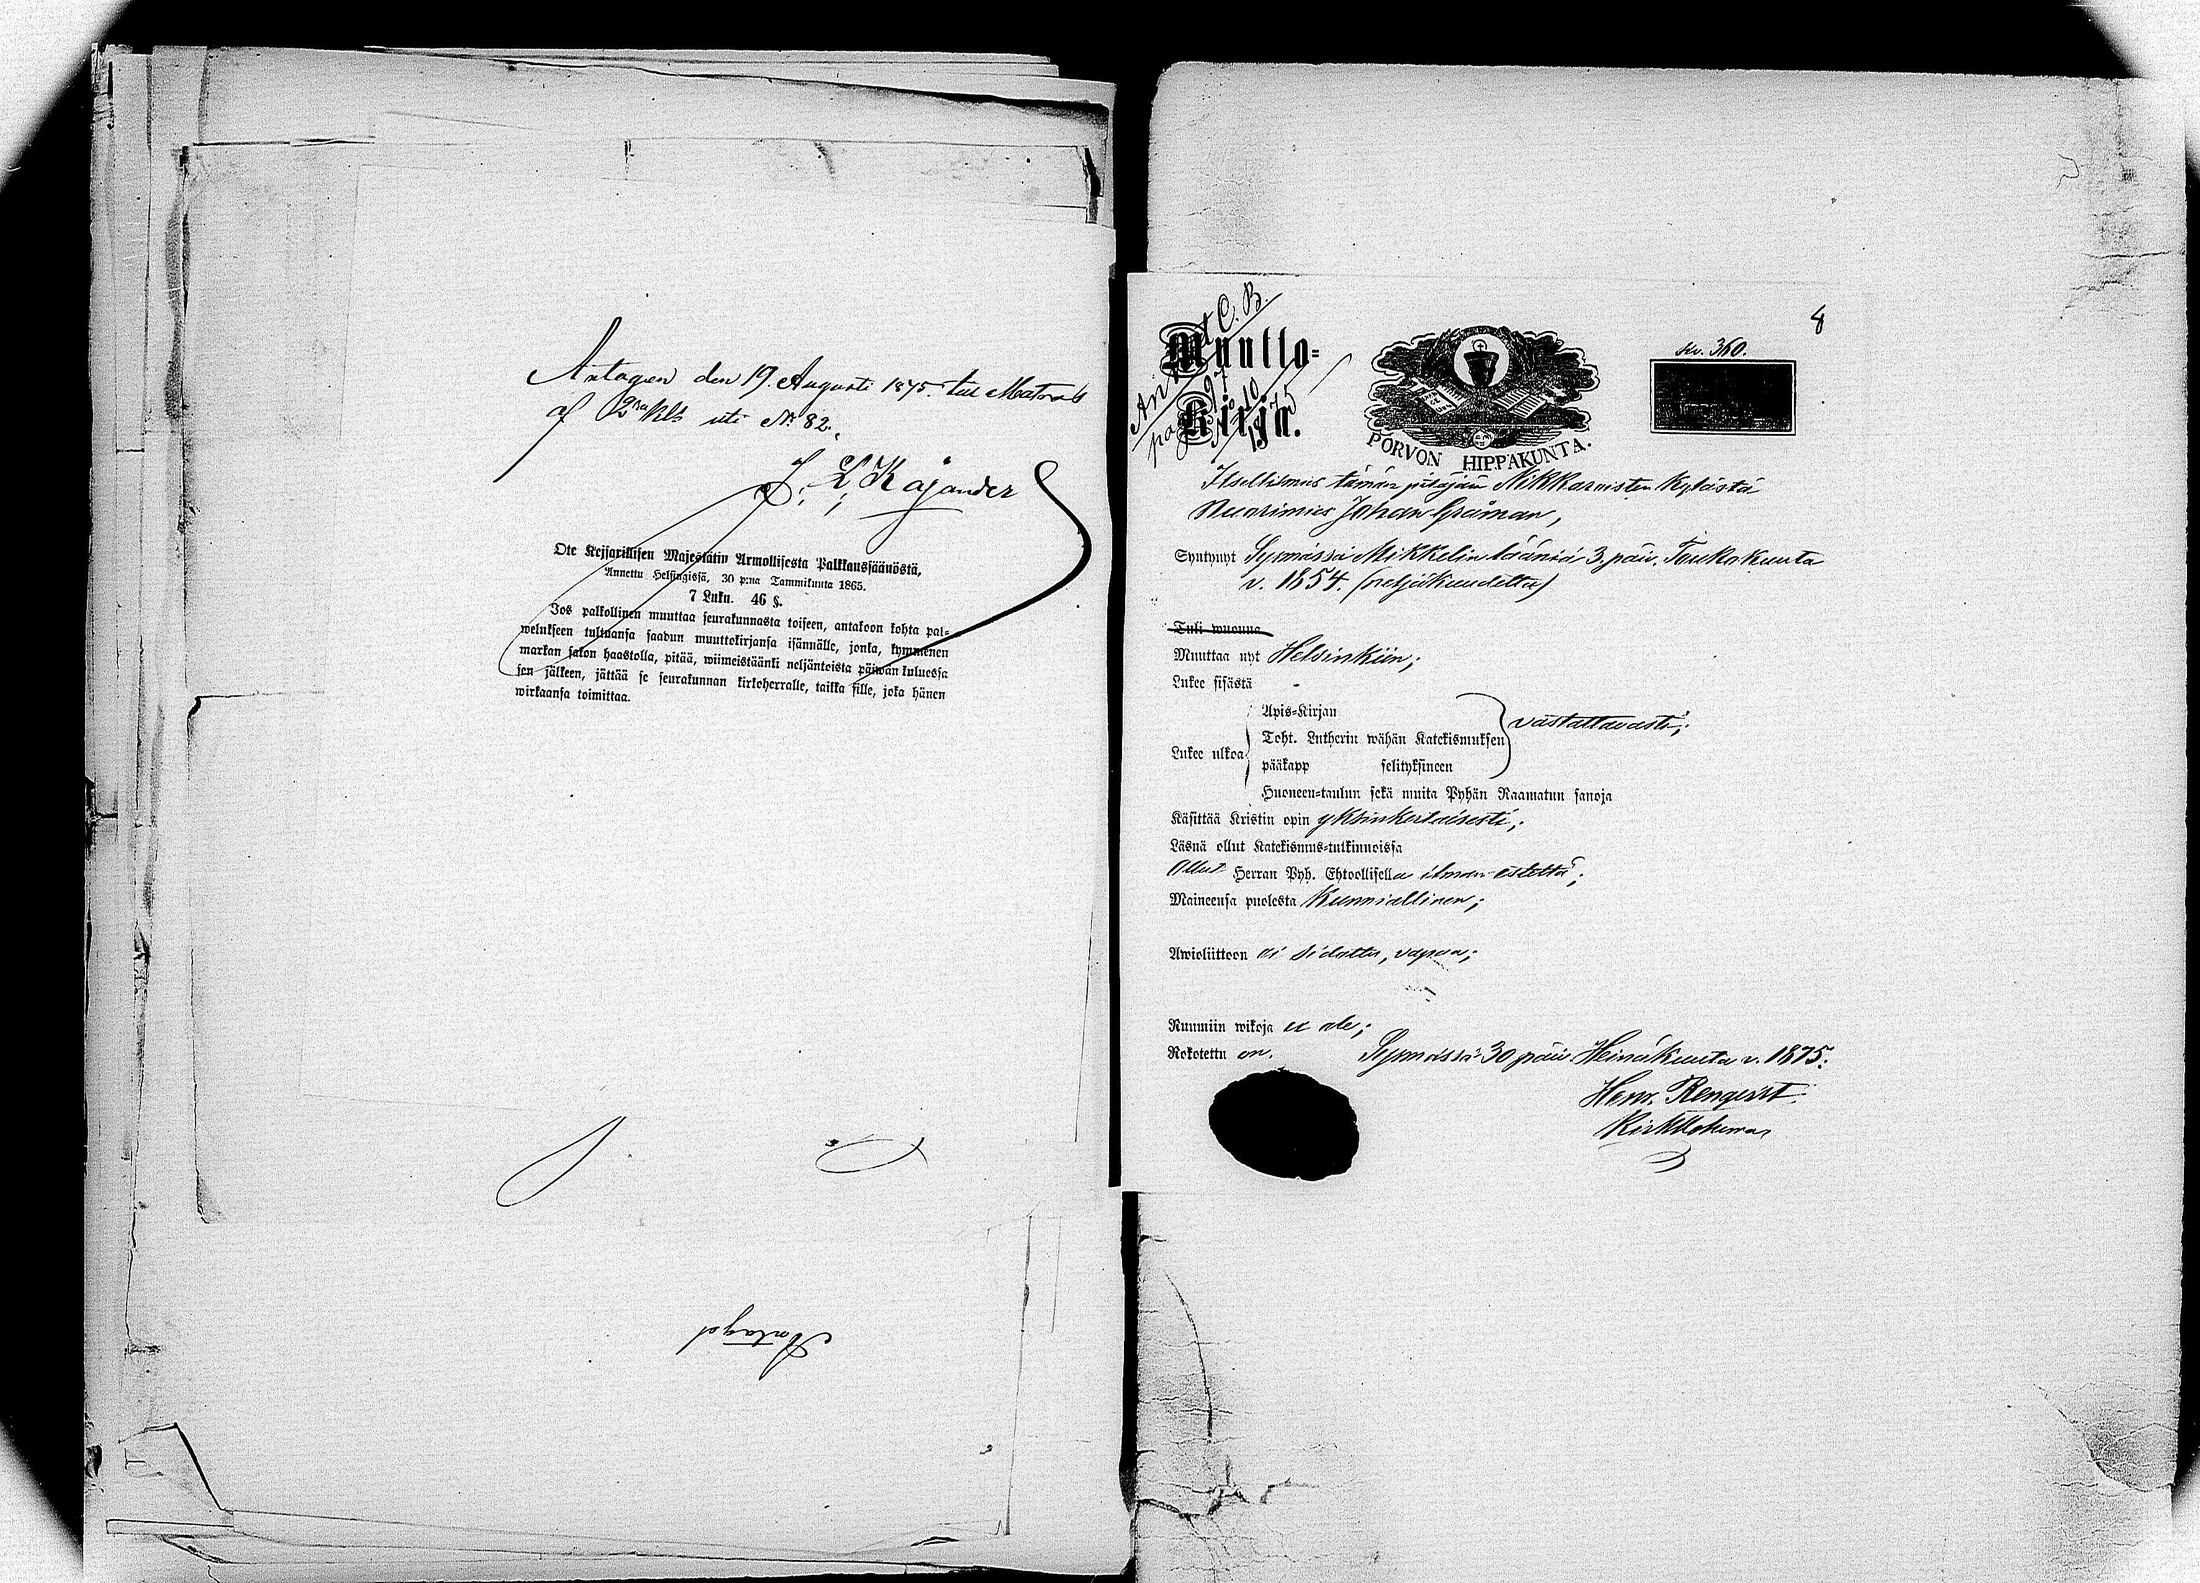 Antagen den 19 Augusti 1875. till Matros
af 2dra Kls uti No 82.
J. L. Kajander
Ote Kejsarillisen Majestätin Armollisesta Palkkaussäänöstä,
Annettu Helsingissä, 30 p:nä Tammikuuta 1865.
7 Luku. 46 §.
Jos palkollinen muuttaa seurakunnasta toiseen, antakoon kohta pal-
welukseen tultuansa saadun muuttokirjansa isännälle, jonka, kymmenen
markan sakon haastolla, pitää, wiimeistäänki neljäntoista päiwän kuluessa
sen jälkeen, jättää se seurakunnan kirkoherralle, taikka sille, joka hänen
wirkaansa toimittaa.
Antagol
8
C. B.
Muutto=
Kirja.
pag 97
No 10
1875
PORVON HIPPAKUNTA.
No. 360.
Itsellismies tämän pitäjän Nikkaroisten kylästä
Nuorimies Johan Gråman,
Syntynyt Sysmässä Mikkelin lääniä 3. päiv. Toukokuuta
v. 1854. (neljäkuudetta)
Tuli wuonna
Muuttaa nyt Helsinkiin;
Lukee sisästä -
Apis=Kirjan
Toht. Lutherin wähän Katekismuksen
Lukee ulkoa vastattavasti;
pääkapp selityksineen
Huoneen=taulun sekä muita Pyhän Raamatun sanoja
Käsittää Kristin opin yksinkertaisesti;
Läsnä ollut Katekismus=tutkinnoissa
Ollut Herran Pyh. Ehtoollisella ilman estettä;
Maineensa puolesta Kunniallinen;
Awioliittoon ei sidottu, vapaa;
Ruumiin wikoja ei ole;
Rokotettu on.
Sysmässä 30 päiv. Heinäkuuta v. 1875.
Henr. Rengvist
Kirkkoherra